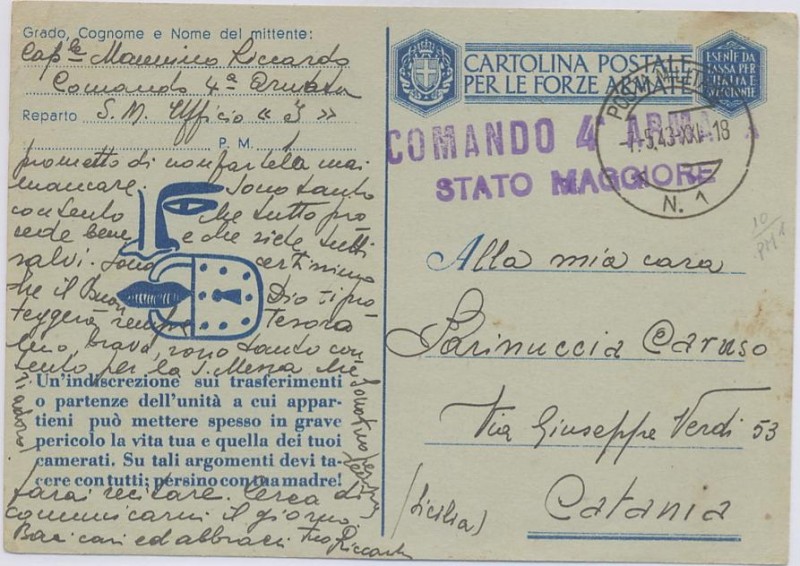 Grado, Cognome e Nome del mittente:
Cap.le Mannino Riccardo
Comando 4ª Armata
Reparto S. M. Ufficio « I »
P. M.
prometto di non fartela mai
mancare. Sono tanto
contento che tutto pro
cede bene e che siete tutti
salvi. Sono certissimo
che il Buon Dio ti pro
teggerà sempre Tesoro
mio, brava, sono tanto con
tento per la S. Messa che
Un'indiscrezione sui trasferimenti
o partenze dell'unità a cui appar-
tieni può mettere spesso in grave
pericolo la vita tua e quella dei tuoi
camerati. Su tali argomenti devi ta-
cere con tutti; persino con tua madre!
farai recitare. Cerca di
comunicarmi il giorno.
Baci cari ed abbracci tuo Riccardo
CARTOLINA POSTALE
PER LE FORZE ARMATE
ESENTE DA
TASSA PER
POSTA MILITARE
-7.5.43·XXI 18
N. 1
COMANDO 4ª ARMATA
STATO MAGGIORE
10
Alla mia cara
Sarinuccia Caruso
Via Giuseppe Verdi 53
(Sicilia) Catania